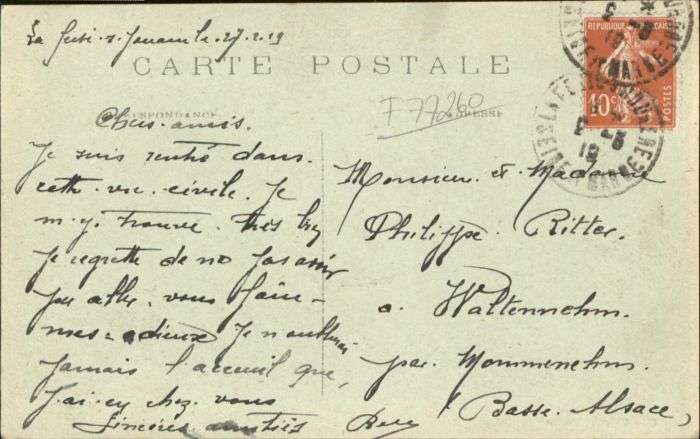 La Ferté-s-Jouarre le 27.2.19
CARTE POSTALE
CORRESPONDANCE
ADRESSE
F77260
10c
POSTES
SEINE-ET-MARNE
Chers amis.
Je suis rentré dans
cette vie civile. Je
m'y trouve très bien
Je regrette de ne pas avoir
pu aller vous faire
mes adieux Je n'oublierai
jamais l'accueil que,
j'ai ey chez vous
Sincères amitiés
Monsieur et Madame
Philippe Ritter.
a Waltennehm.
par Mommenehm.
Basse Alsace